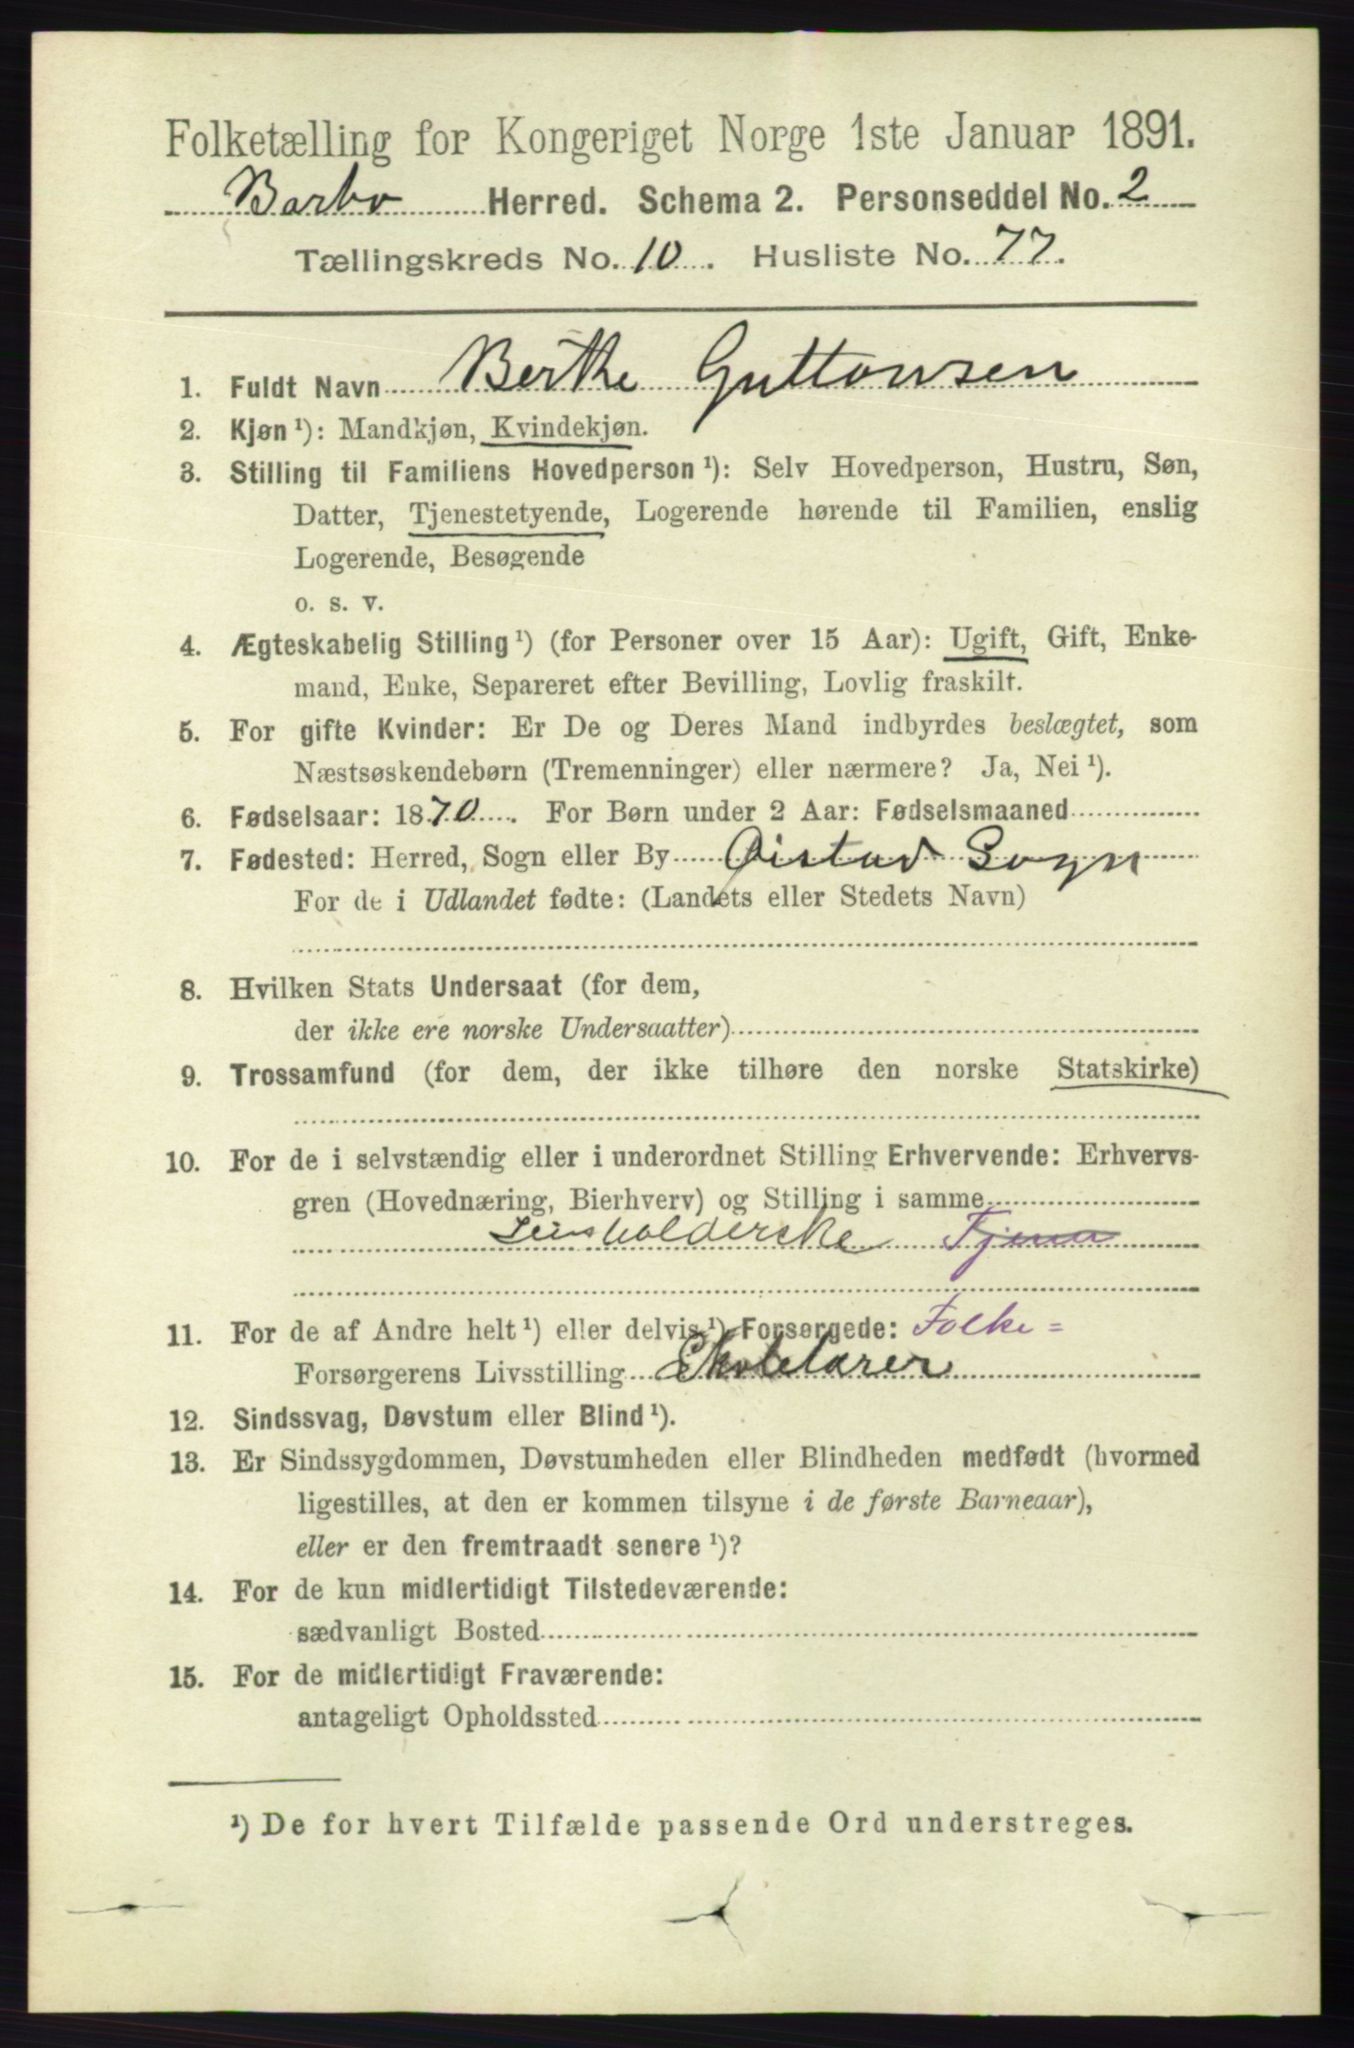 Folketælling for Kongeriget Norge 1ste Januar 1891.
Barbo Herred. Schema 2. Personseddel No. 2
Tællingskreds No. 10. Husliste No. 77.
1. Fuldt Navn Berthe Guttonsen
2. Kjøn ¹): Mandkjøn, Kvindekjøn.
3. Stilling til Familiens Hovedperson ¹): Selv Hovedperson, Hustru, Søn,
Datter, Tjenestetyende, Logerende hørende til Familien, enslig
Logerende, Besøgende
o. s. v.
4. Ægteskabelig Stilling ¹) (for Personer over 15 Aar): Ugift, Gift, Enke-
mand, Enke, Separeret efter Bevilling, Lovlig fraskilt.
5. For gifte Kvinder: Er De og Deres Mand indbyrdes beslægtet, som
Næstsøskendebørn (Tremenninger) eller nærmere? Ja, Nei ¹).
6. Fødselsaar: 1870. For Børn under 2 Aar: Fødselsmaaned
7. Fødested: Herred, Sogn eller By Øistad Sogn
For de i Udlandet fødte: (Landets eller Stedets Navn)
8. Hvilken Stats Undersaat (for dem,
der ikke ere norske Undersaatter)
9. Trossamfund (for dem, der ikke tilhøre den norske Statskirke)
10. For de i selvstændig eller i underordnet Stilling Erhvervende: Erhvervs-
gren (Hovednæring, Bierhverv) og Stilling i samme
Huusholderske
11. For de af Andre helt ¹) eller delvis ¹) Forsørgede: Folke=
Forsørgerens Livsstilling Skolelærer
12. Sindssvag, Døvstum eller Blind ¹).
13. Er Sindssygdommen, Døvstumheden eller Blindheden medfødt (hvormed
ligestilles, at den er kommen tilsyne i de første Barneaar),
eller er den fremtraadt senere ¹)?
14. For de kun midlertidigt Tilstedeværende:
sædvanligt Bosted
15. For de midlertidigt Fraværende:
antageligt Opholdssted
¹) De for hvert Tilfælde passende Ord understreges.